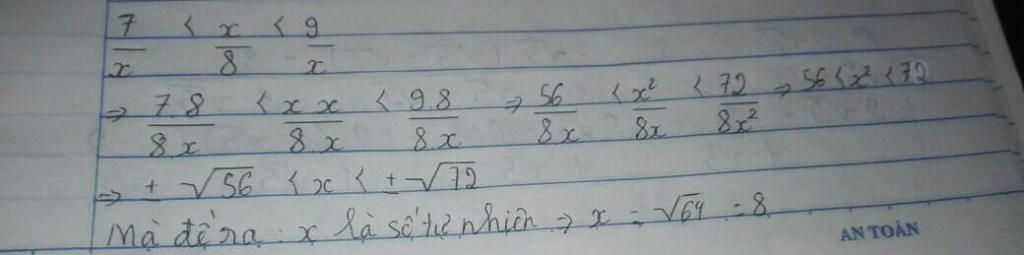 7/x < x/8 < 9/x
⇒ 7.8/8.x < x.x/8.x < 9.8/8.x ⇒ 56/8x < x²/8x < 72/8x² ⇒ 56 < x² < 72
⇒ ± √56 < x < ± √72
Mà đề ra : x là số tự nhiên ⇒ x = √64 = 8
AN TOÀN